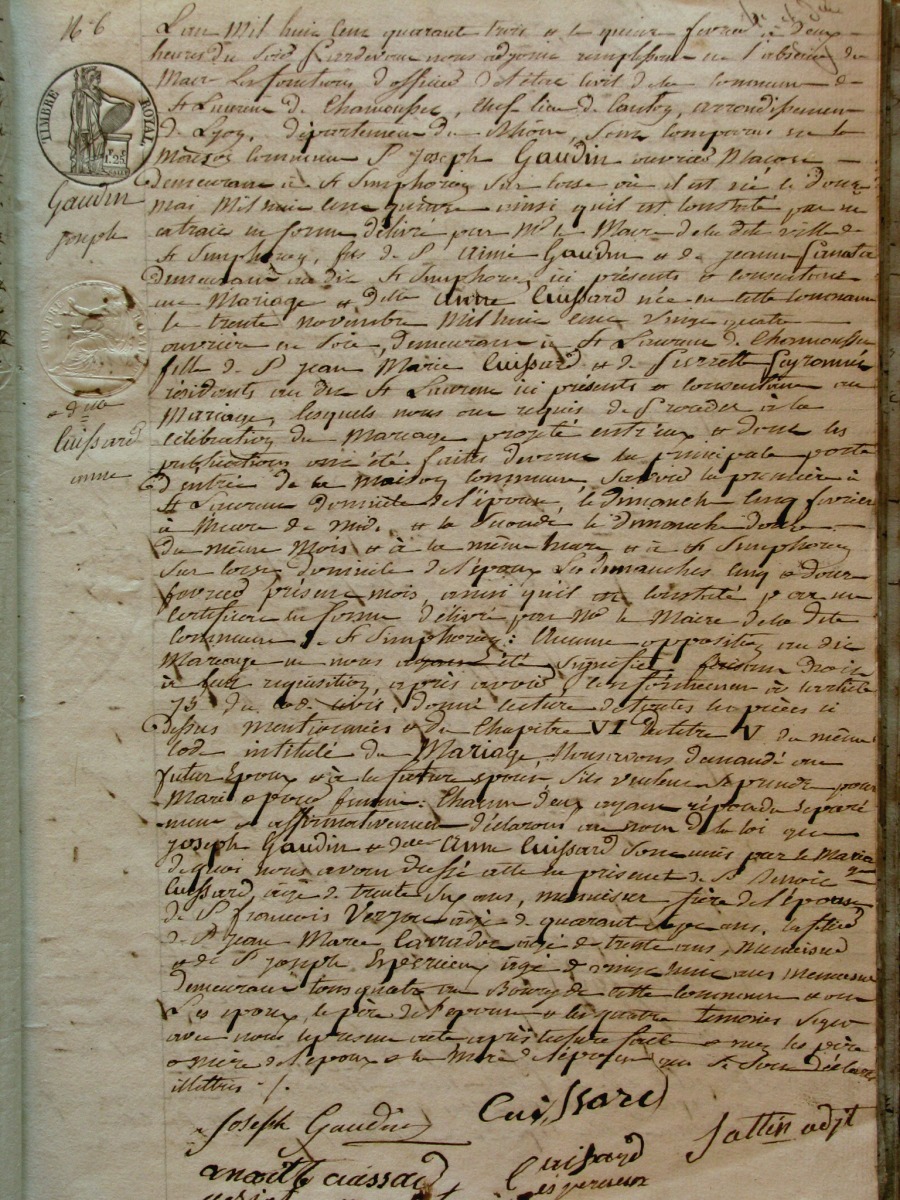 N° 6
TIMBRE ROYAL
1 F. 25
Gaudin
joseph
& dlle
Cuissard
anne
L'an Mil huit cent quarante trois & le quinze fevrier à deux
heures du soir Pardevant nous adjoint remplissant en l'absence du
Maire les fonctions d'officier d'état civil de la commune de
St Laurent de Chamousset, chef lieu de Canton, arrondissement
de Lyon, département du Rhône, sont comparus en la
maison commune Sr Joseph Gaudin ouvrier Maçon
demeurant à St Simphorien sur Coise où il est né le douze
mai Mil huit cent quinze ainsi qu'il est constaté par un
extrait en forme délivré par Mr le Maire de la dite ville de
St Simphorien, fils de Sr Aimé Gaudin & de jeanne
demeurant au dit St Simphorien ici présents & consentant
au Mariage & dlle Anne Cuissard née en cette commune
le trente novembre Mil huit cent vingt quatre
ouvrière en soie, demeurant à St Laurent de Chamousset
fille de Sr jean Marie Cuissard & de Pierrette
résidants au dit St Laurent ici présents & consentant au
Mariage, lesquels nous ont requis de procéder à la
célébration du Mariage projeté entr'eux & dont les
publications ont été faites devant la principale porte
d'entrée de la maison commune, savoir la première à
St Laurent domicile de l'épouse, le Dimanche cinq fevrier
à l'heure de midi & la seconde le Dimanche douze
du même Mois & à la même heure & à St Simphorien
sur Coise domicile de l'époux les Dimanches cinq & douze
fevrier présent mois, ainsi qu'il est constaté par un
certificat en forme délivré par Mr le Maire de la dite
commune de St Simphorien : Aucune opposition au dit
Mariage ne nous ayant été signifiée faisant droit
à leur requisition, après avoir, conformément à l'article
75 du code civil, donné lecture de toutes les pièces ci
Dessus mentionnées & du Chapitre VI du titre V du même
code intitulé du Mariage, Nous avons demandé au
futur Epoux & à la future épouse s'ils veulent se prendre pour
Mari & pour femme : Chacun d'eux ayant répondu séparé
ment & affirmativement déclarons au nom de la loi que
joseph Gaudin & dlle Anne Cuissard sont unis par le Mariage
de quoi nous avons dressé acte en présence de Sr
Cuissard, âgé de trente ans, menuisier frère de l'épouse
de Sr françois âgé de quarante ans,
de Sr jean Marie âgé de trente ans,
& de Sr joseph âgé de vingt huit ans
demeurant tous quatre au Bourg de cette commune & ont
Les époux, le père de l'épouse & les quatre temoins signé
avec nous le présent acte après lecture faite & non les père
& mère de l'époux & la Mère de l'épouse qui se sont déclarés
illettrés ./.
Joseph Gaudin
Cuissard
Sattin adjt
Cuissard